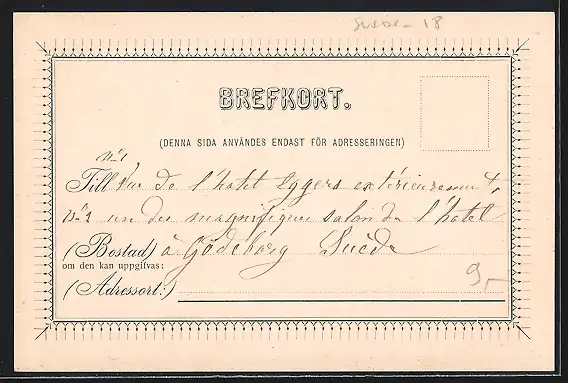 Suede - 18
BREFKORT.
(DENNA SIDA ANVÄNDES ENDAST FÖR ADRESSERINGEN)
n°1
Till Vue de l'hotel Eggers extérieurement
n°2 un des magnifiques salon de l'hotel
(Bostad) à Göteborg Suède
om den kan uppgifvas:
(Adressort:)
9,-